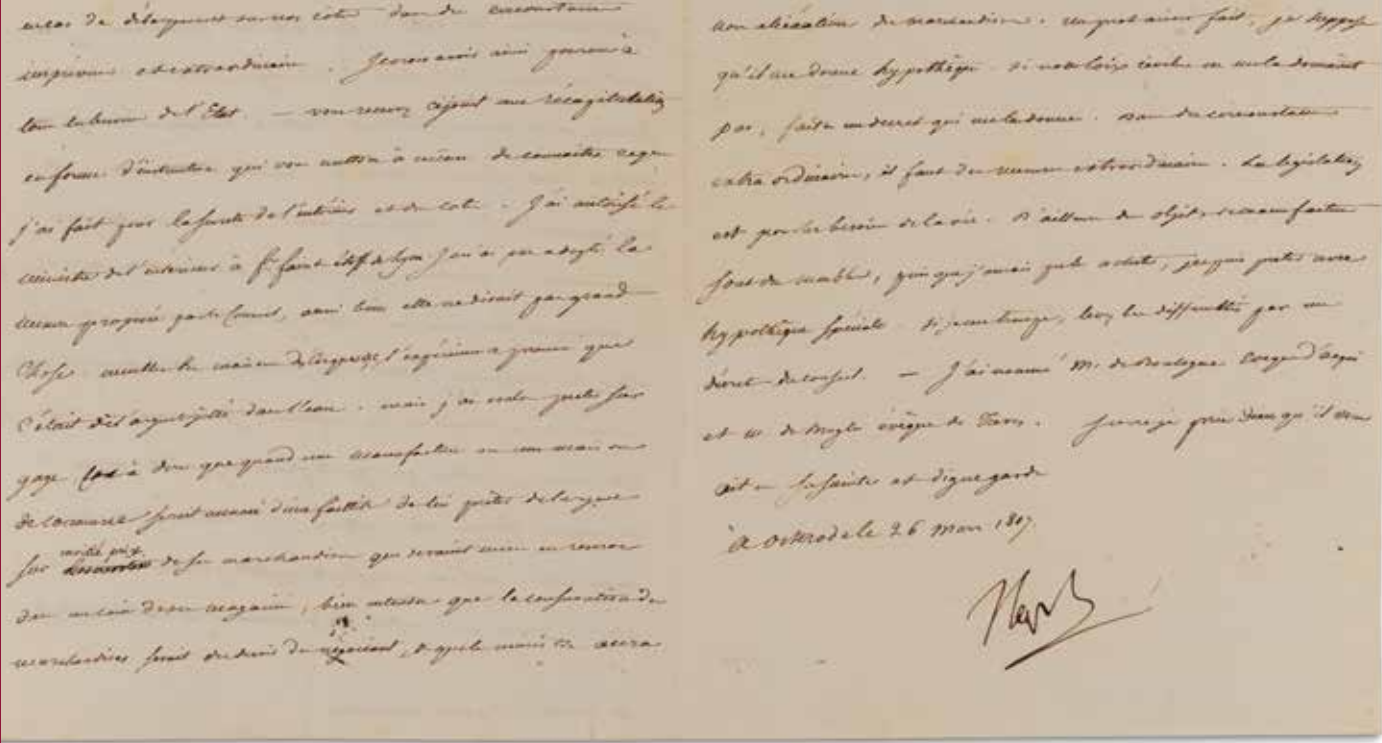 en cas de débarquement sur nos côtes dans des circonstances
imprévues et extraordinaires. J'aurai ainsi pourvu à
tous les besoins de l'Etat. — vous recevrez ci-joint une récapitulation
en forme d'instruction qui vous mettra à même de connaître ce que
j'ai fait pour la sureté de l'intérieur et des côtes. J'ai autorisé le
ministre de l'intérieur à fr faire étof de Lyon J'en ai pas adopté la
mesure proposée par le Conseil, aussi bien elle ne disait pas grand
Chose. l'expérience a prouvé que
c'était de l'argent jetté dans l'eau. mais j'ai voulu preter sur
gage c'est à dire que quand une manufacture ou une maison
de commerce serait menacé d'une faillite de lui prêter de l'argent
sur moitié prix de ses marchandises qui seraient mises en réserve
dans un coin de son magasin, bien entendu que la conservation des
marchandises serait du devoir du négociant, lequel
non aliénation de marchandises. un prêt ainsi fait, je suppose
qu'il me donne hypothèque. si nos loix civiles ne me la donnent
pas, faites un decret qui me la donne. dans des circonstances
extraordinaires, il faut des mesures extraordinaires. La législation
est pour les besoins de la vie. D'ailleurs des objets de manufacture
sont des meubles, puisque j'aurais pu les acheter, je puis preter avec
hypothèque spéciale. si je me trompe, levez les difficultés par un
décret du conseil. — J'ai nommé M. de Boulogne évêque d'acqui
et M. de Broglie évêque de Sur ce je prie Dieu qu'il vous
ait en sa sainte et digne garde
à osterode le 26 mars 1807.
Nap